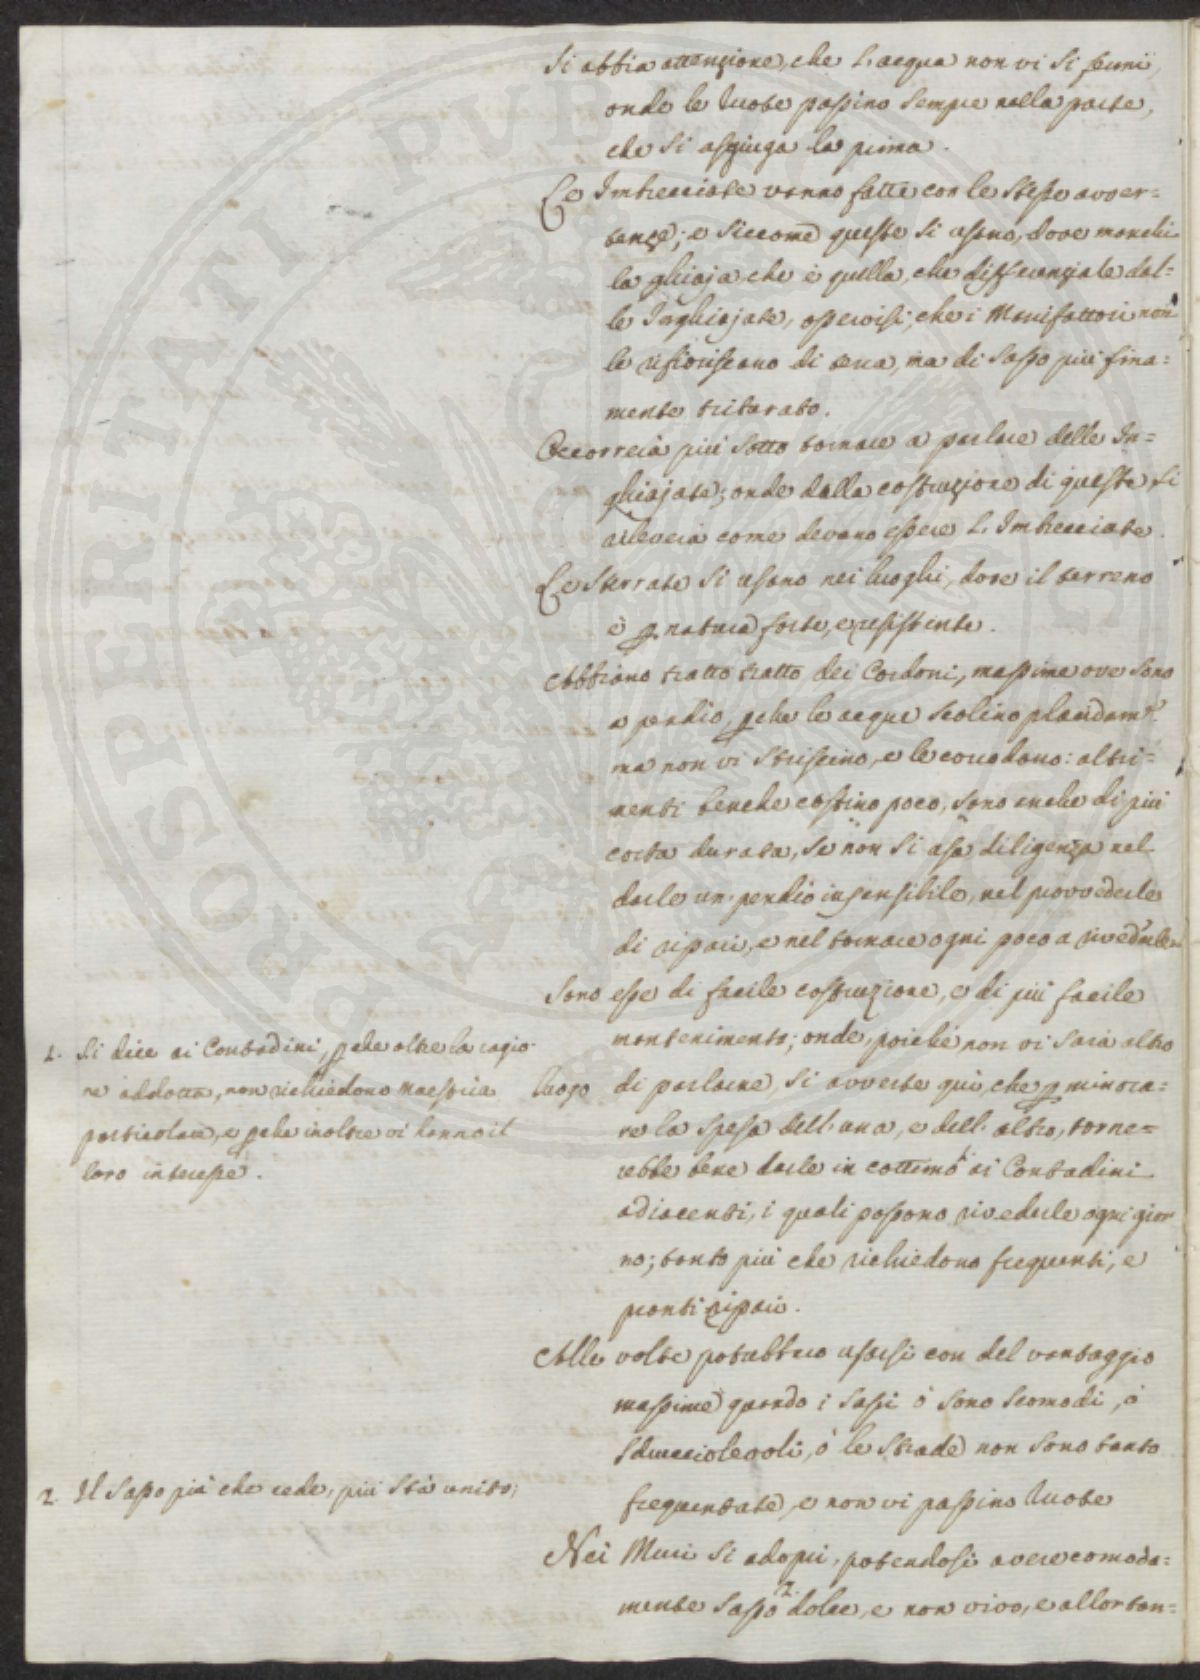 Si abbia attenzione, che l'acqua non vi si fermi,
onde le Ruote passino sempre nella parte,
che si asciuga la prima.
Le Imbrecciate vanno fatte con le stesse avver=
tenze; e siccome queste si usano, dove manchi
la ghiaja che è quella, che differenziale dal=
le Inghiajate, osservisi, che i Manifattori non
le rifioriscano di terra, ma di sasso più fina=
mente tritorato.
Occorrerà più sotto tornare a parlare delle In=
ghiajate; onde dalla costruzione di queste si
rileverà come devano essere l'Imbrecciate.
Le Sterrate si usano nei luoghi, dove il terreno
è p natura forte, e resistente.
Abbiano tratto tratto dei Cordoni, massime ove sono
a pendio, pche le acque scolino placidamte
ma non vi striscino, e le corrodano: altri=
menti benche costino poco, sono anche di più
corta durata, se non si usa diligenza nel
darle un pendio insensibile, nel provvederle
di ripari, e nel tornare ogni poco a rivederle.
Sono esse di facile costruzione, e di più facile
mantenimento; onde, poiché non vi sarà altro
luogo di parlarne, si avverte quì, che p minora=
re la spesa dell'una, e dell'altro, torne=
rebbe bene darle in cottimo 1. ai Contadini
adiacenti, i quali possono rivederle ogni gior
no; tanto più che richiedono frequenti, e
pronti ripari.
1. Si dice ai Contadini, pche oltre la ragio
ne addotta, non richiedono maestria
particolare, e pche inoltre vi hanno il
loro interesse.
Alle volte potrebbero usarsi con del vantaggio
massime quando i sassi ò sono scomodi, ò
sdrucciolevoli, ò le strade non sono tanto
frequentate, e non vi passino Ruote
Nei Muri si adopri, potendosi avere comoda=
mente Sasso 2. dolce, e non vivo, e allontan=
2. Il Sasso più che cede, più stà unito;
PROSPERITATI PVB